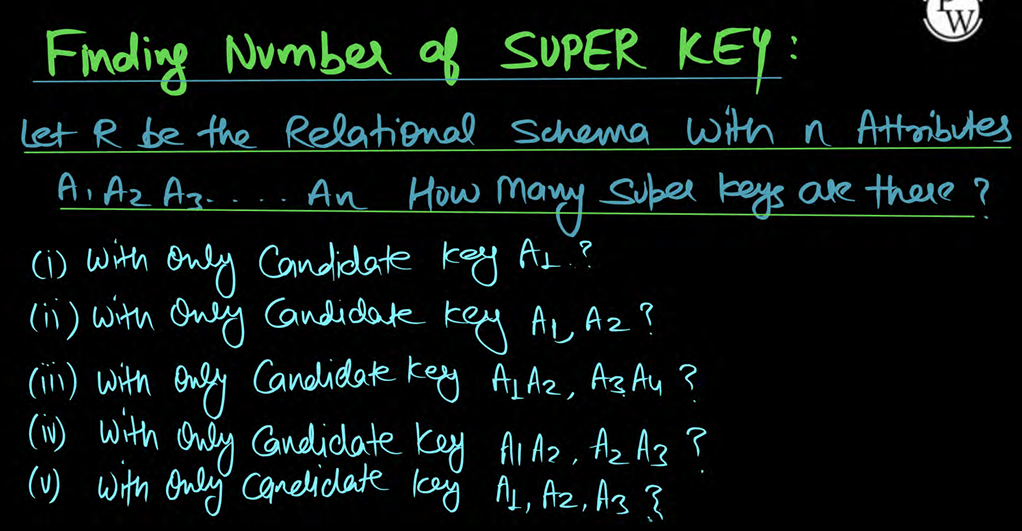 PW
Finding Number of SUPER KEY:
Let R be the Relational Schema with n Attributes
A1 A2 A3..... An How Many Super keys are there ?
(i) With Only Candidate key A1 ?
(ii) With Only Candidate key A1, A2 ?
(iii) With Only Candidate key A1A2, A3A4 ?
(iv) With Only Candidate key A1A2, A2A3 ?
(v) With Only Candidate key A1, A2, A3 ?